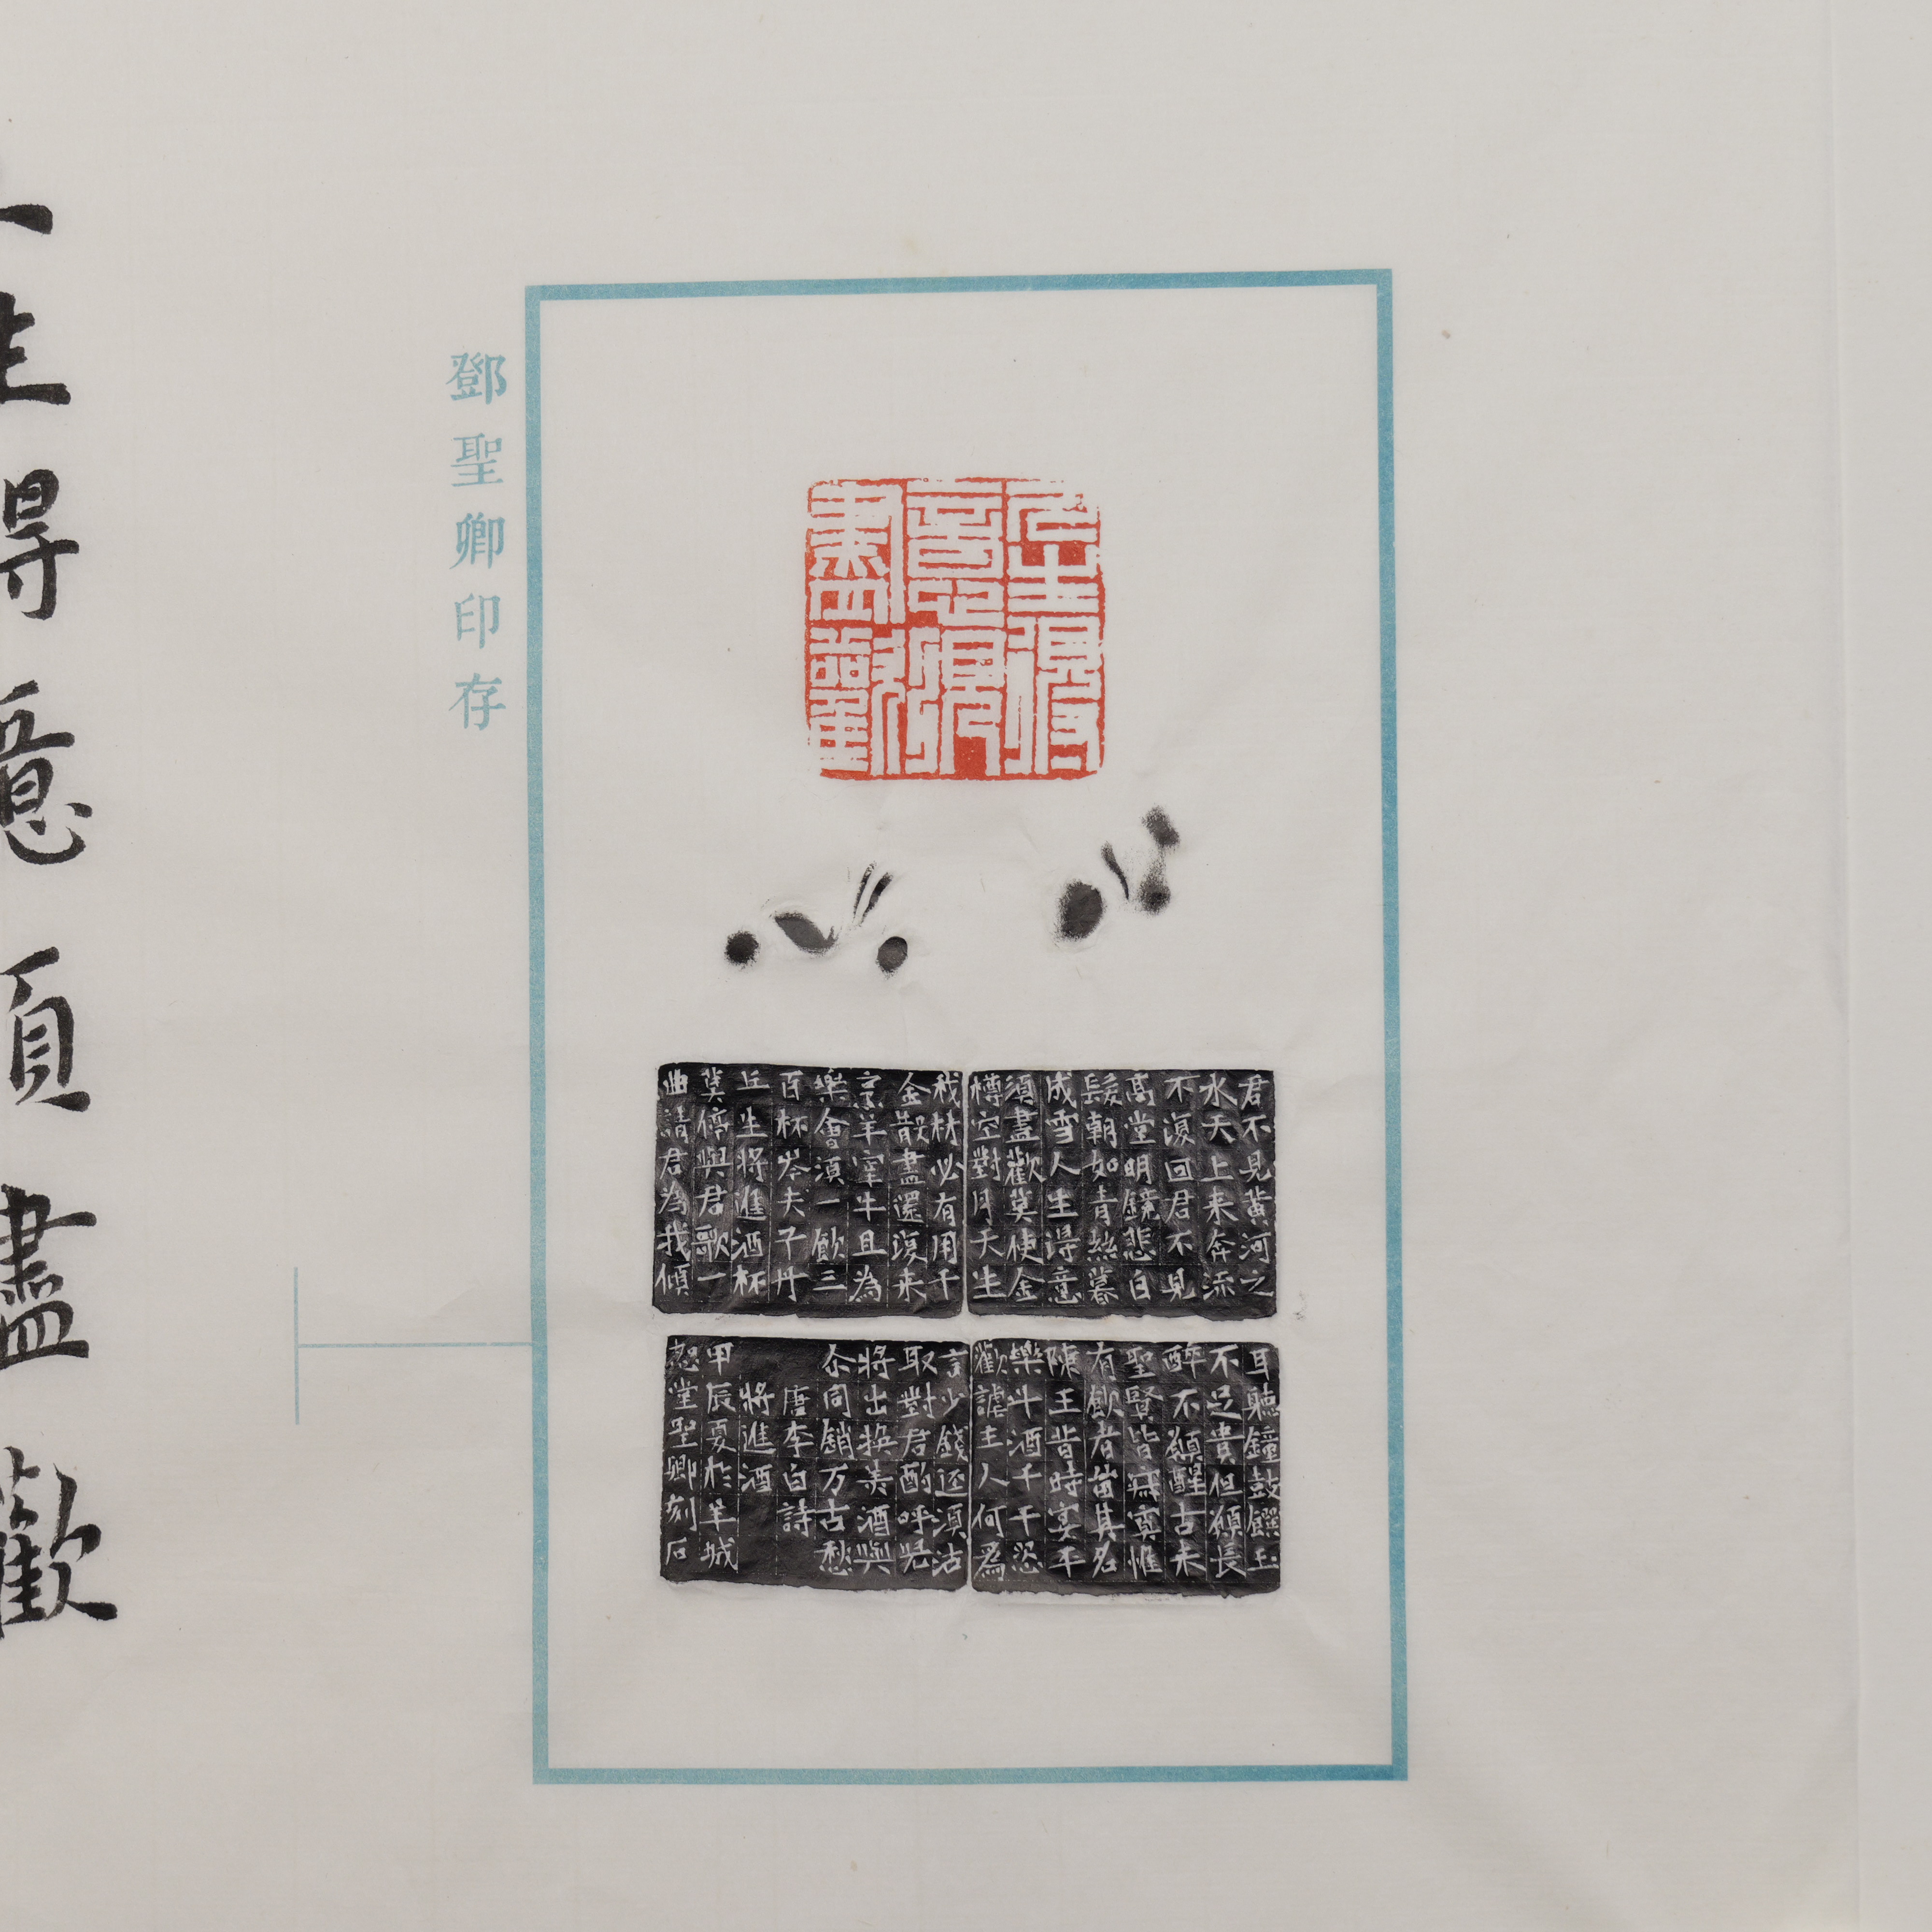 人生得
意須
盡歡
君不見黃河之
水天上来奔流
不復回君不見
高堂明鏡悲白
髮朝如青絲暮
成雪人生得意
須盡歡莫使金
樽空對月天生
我材必有用千
金散盡還復来
烹羊宰牛且為
樂會須一飲三
百杯岑夫子丹
丘生將進酒杯
莫停與君歌一
曲請君為我傾
耳聽鐘鼓饌玉
不足貴但願長
醉不願醒古来
聖賢皆寂寞惟
有飲者留其名
陳王昔時宴平
樂斗酒千千恣
歡謔主人何為
言少錢逕須沽
取對君酌呼兒
將出換美酒與
尓同銷万古愁
唐李白詩
將進酒
甲辰夏於羊城
恕堂聖卿刻石
鄧聖卿印存
生得意須盡歡